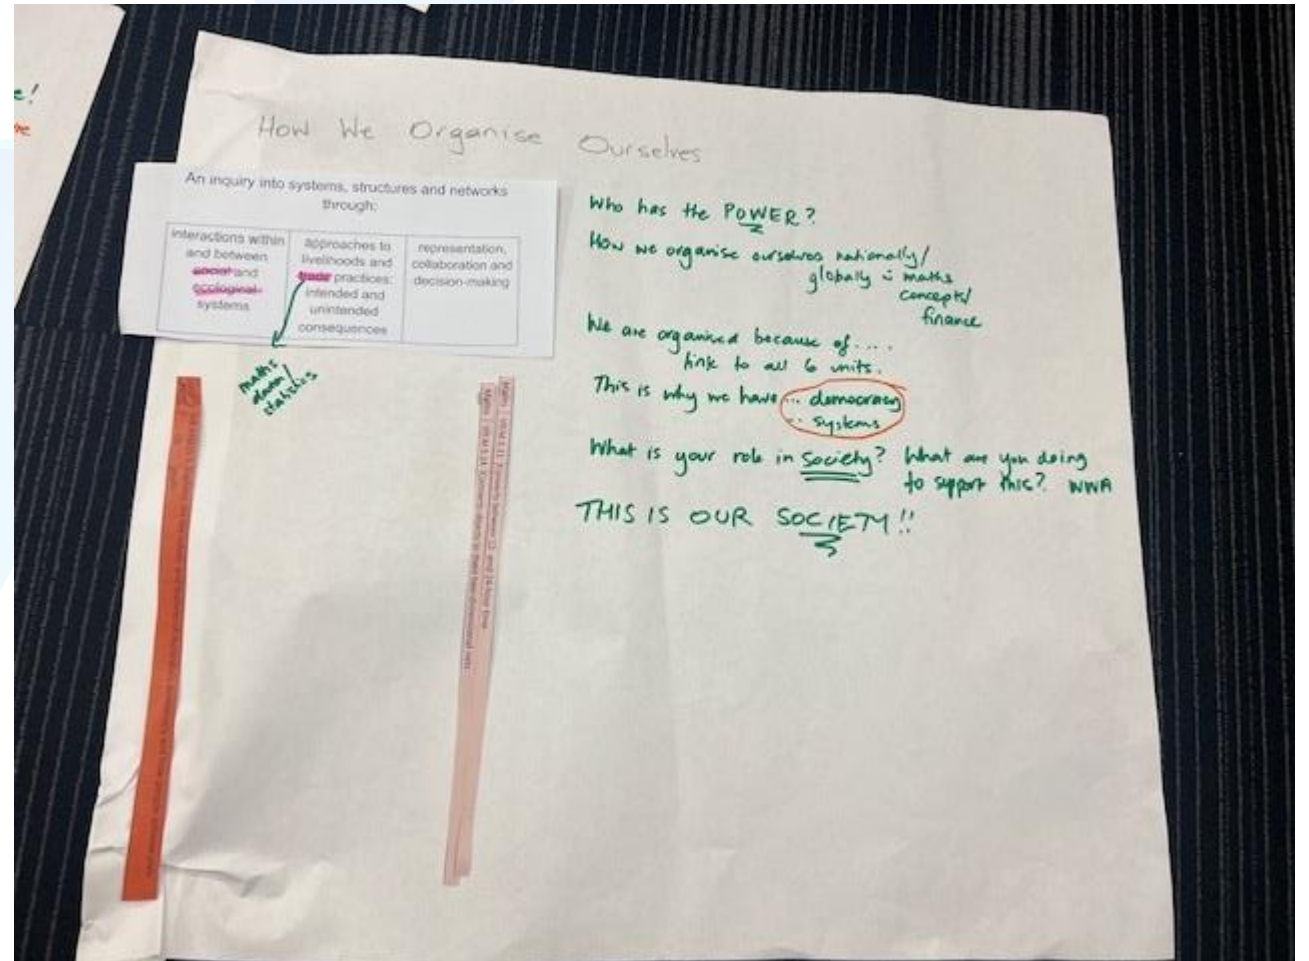 e!
How We Organise Ourselves
An inquiry into systems, structures and networks
through:
interactions within
and between
social and
ecological
systems
approaches to
livelihoods and
trade practices:
intended and
unintended
consequences
representation,
collaboration and
decision-making
maths
statistics
Who has the POWER?
How we organise ourselves nationally/
globally maths
concepts/
finance
We are organised because of....
link to all 6 units.
This is why we have... democracy
... systems
What is your role in society? What are you doing
to support this? WWA
THIS IS OUR SOCIETY!!
between 12 and 24 hour time